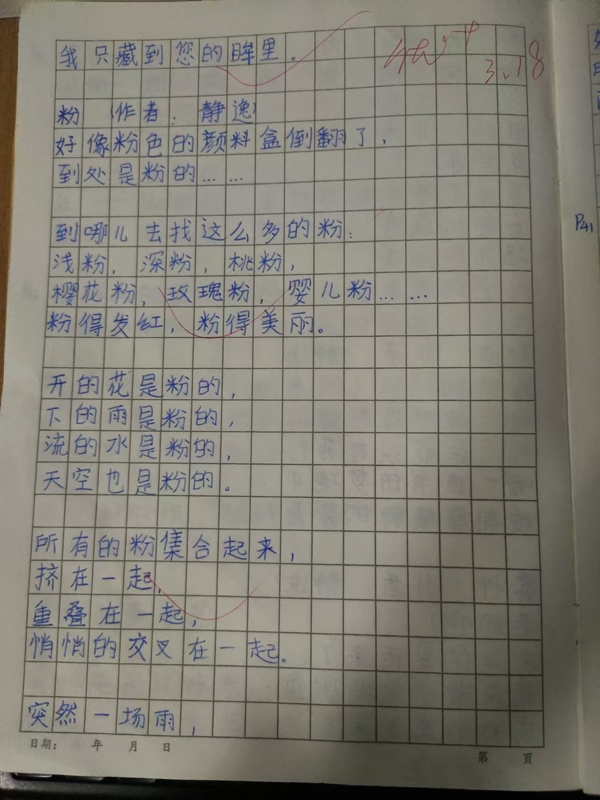 我只藏到您的眸里。
3.18
粉（作者：静逸）
好像粉色的颜料盒倒翻了，
到处是粉的……
到哪儿去找这么多的粉：
浅粉，深粉，桃粉，
樱花粉，玫瑰粉，婴儿粉……
粉得发红，粉得美丽。
P41
开的花是粉的，
下的雨是粉的，
流的水是粉的，
天空也是粉的。
所有的粉集合起来，
挤在一起，
重叠在一起，
悄悄的交叉在一起。
突然一场雨，
日期： 年 月 日
第 页